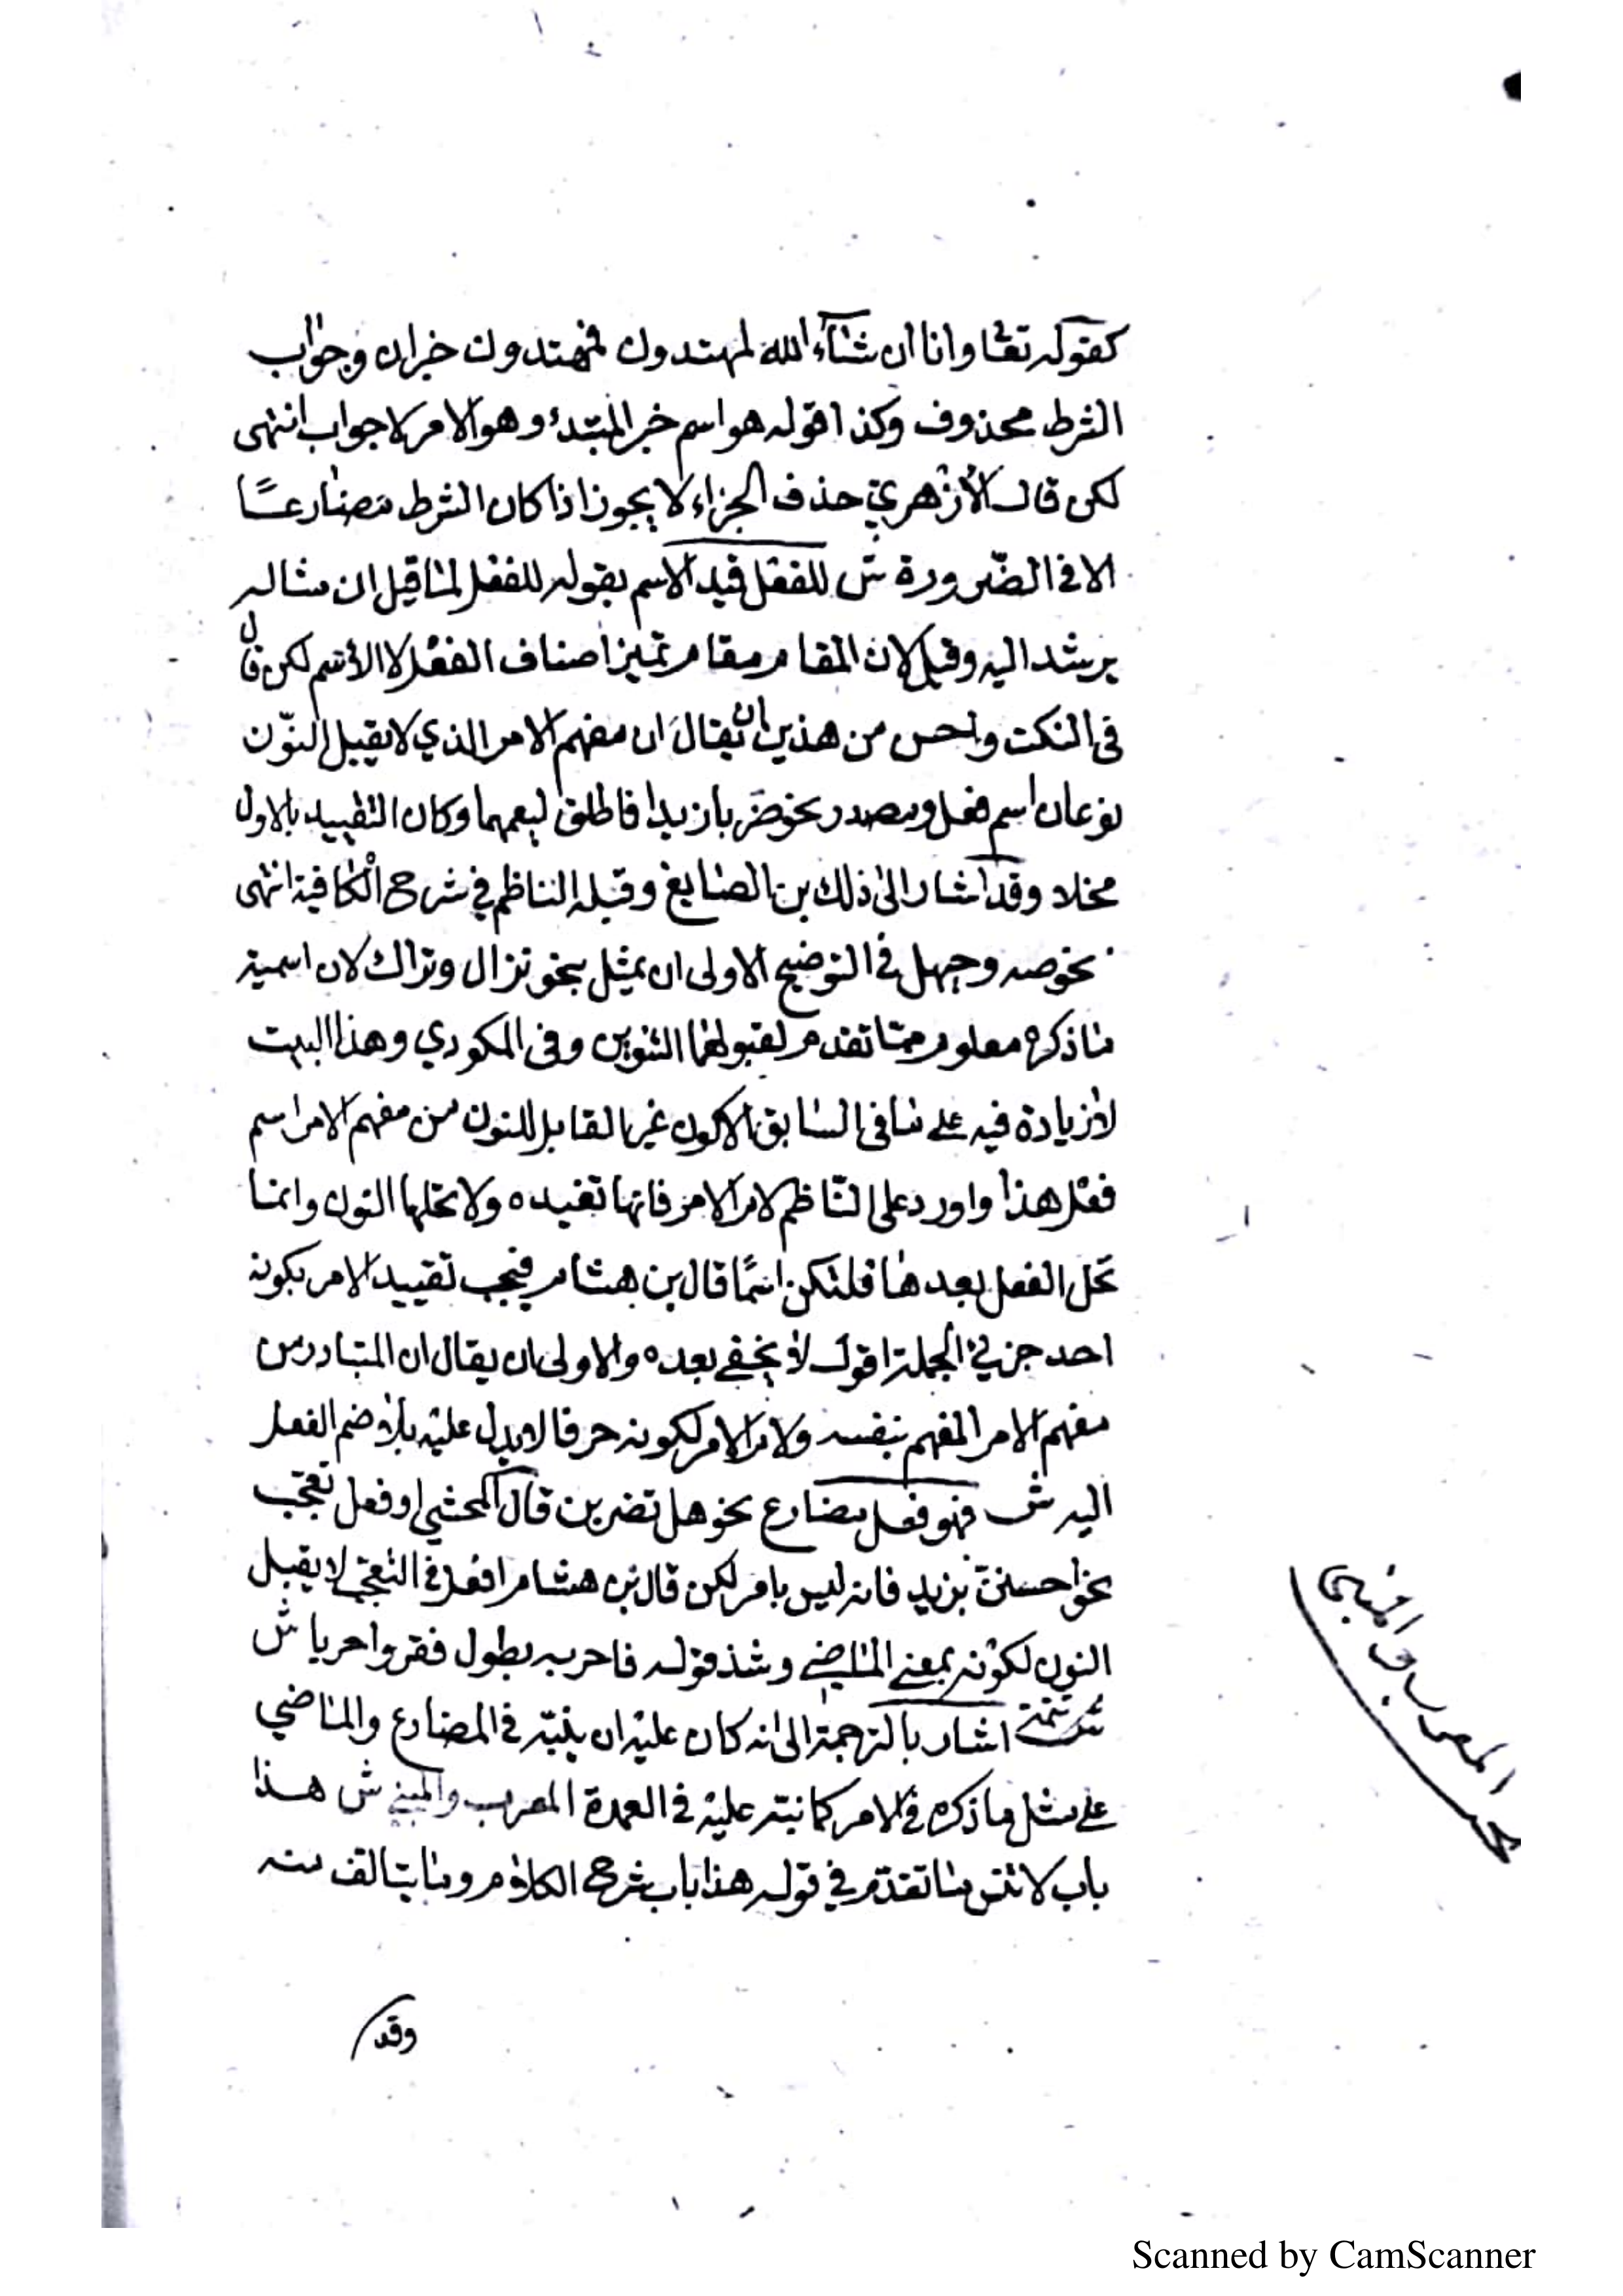 كقوله تعا وانا ان شاء الله لمهتدون فمهتدون خبران وجواب
الشرط محذوف وكذا قوله هو اسم خبر المبتدء وهو الامر لا جواب انتهى
لكن قال الأزهري حذف الجزاء لا يجوز اذا كان الشرط مضارعًا
الا في الضرورة ش للفعل قيد الاسم بقوله للفعل لما قيل ان مثاله
يرشد اليه وقيل لان المقام مقام تميز اصناف الفعل لا الاسم لكن قال
في النكت واحس من هذين ان يقال ان مفهم الامر الذي لا يقبل النّون
نوعان اسم فعل ومصدر نحو ضربا زيدا فاطلق ليعمهما وكان التقييد بالاول
مخلا وقد اشار الى ذلك بن الصايغ وقبله الناظم في شرح الكافية انتهى
نحو صه وحيهل في التوضيح الاولى ان يمثل بنحو نزال وتراك لان اسمية
ما ذكره معلوم مما تقدم لقبولهما التنوين وفي المكودي وهذا البيت
لا زيادة فيه على ما في السابق الا كون غير القابل للنون من مفهم الامر اسم
فعل هذا واورد على النّاظم لام الامر فانها تفيده ولا تحلها النون وانما
تحل الفعل بعدها فلتكن اسمًا قال بن هشام فيجب تقييد الامر بكونه
احد جزئي الجملة اقول لا يخفى بعده والاولى ان يقال ان المتبادر من
مفهم الامر المفهم بنفسه ولام الامر لكونه حرفا لا يدل عليه بلا ضم الفعل
اليه ش فهو فعل مضارع نحو هل تضربن قال المحشي او فعل تعجّب
نحو احسنن بزيد فانه ليس بامر لكن قال بن هشام افعل في التعجّب لا يقبل
النون لكونه بمعنى الماضي وشذ قوله فاحر به بطول فقر واحريا ش
تتمة اشار بالترجمة الى انه كان عليه ان ينبّه في المضارع والماضي
على مثل ما ذكره في الامر كما نبّه عليه في العمدة المعرب والمبني ش هذا
باب لا تنس ما تقدّم في قوله هذا باب شرح الكلام وما يتالف منه
وقد
المعرب والمبنى